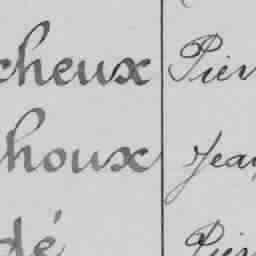 cheux Pier
houx Jean
dé Pier